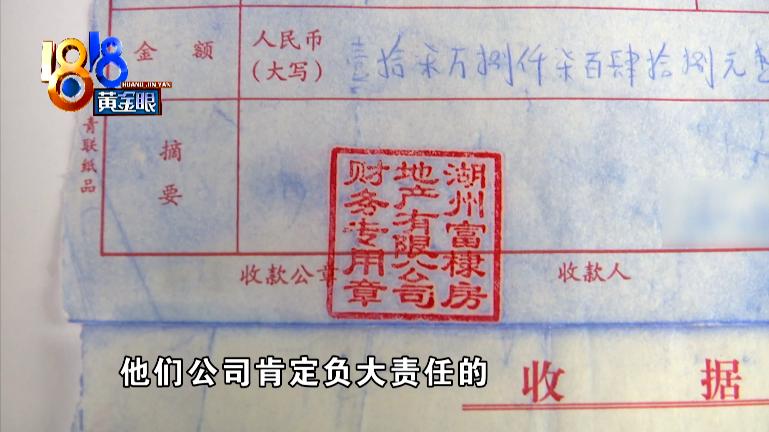 1818
HUANG JIN YAN
黄金眼
金 额
人民币
(大写)
壹拾柒万捌仟柒百肆拾捌元整
青联纸品
摘要
湖州富棣房
地产有限公司
财务专用章
收款公章
收款人
收 据
他们公司肯定负大责任的